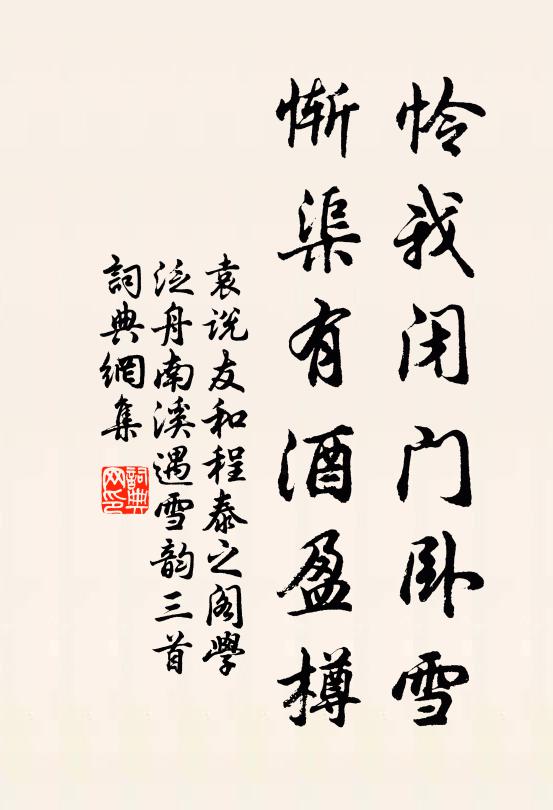 怜我闭门卧雪
惭渠有酒盈樽
袁说友和程泰之阁学
泛舟南溪遇雪韵三首
詞典網集
詞典网印